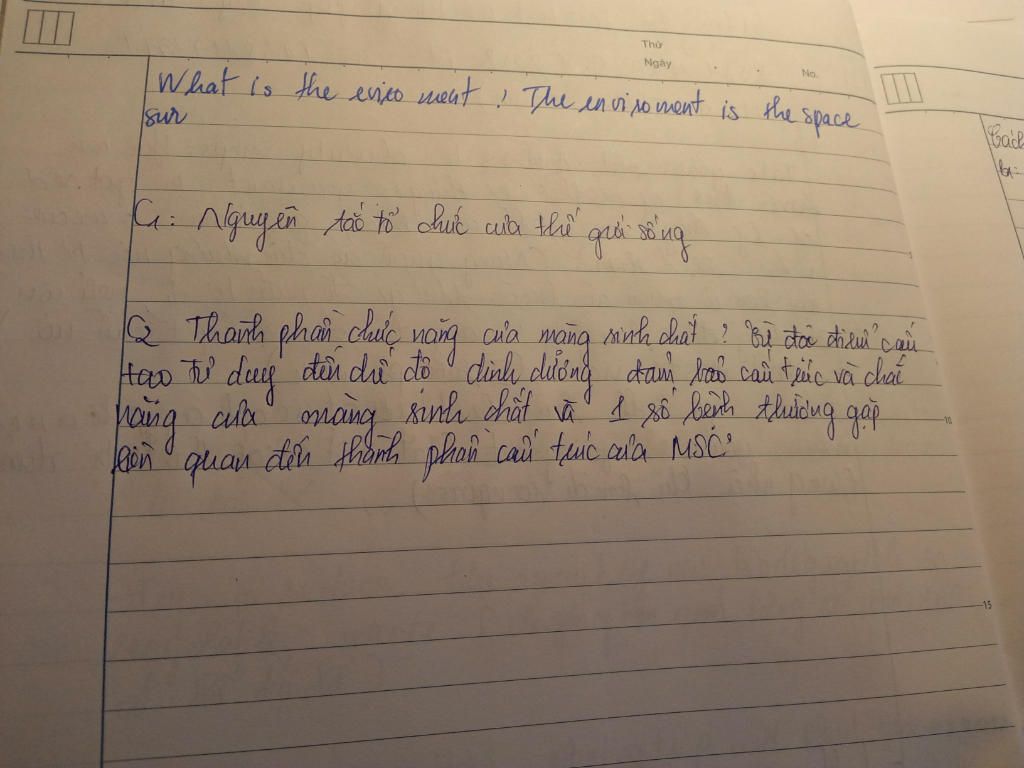 Thứ
Ngày
No.
What is the eviroment? The enviroment is the space
sur
C1: Nguyên tắc tổ chức của thế giới sống
C2 Thành phần chức năng của màng sinh chất? Từ đặc điểm cấu
tạo tư duy đến chế độ dinh dưỡng đảm bảo cấu trúc và chức
năng của màng sinh chất và 1 số bệnh thường gặp
liên quan đến thành phần cấu trúc của MSC
10
15
Cách